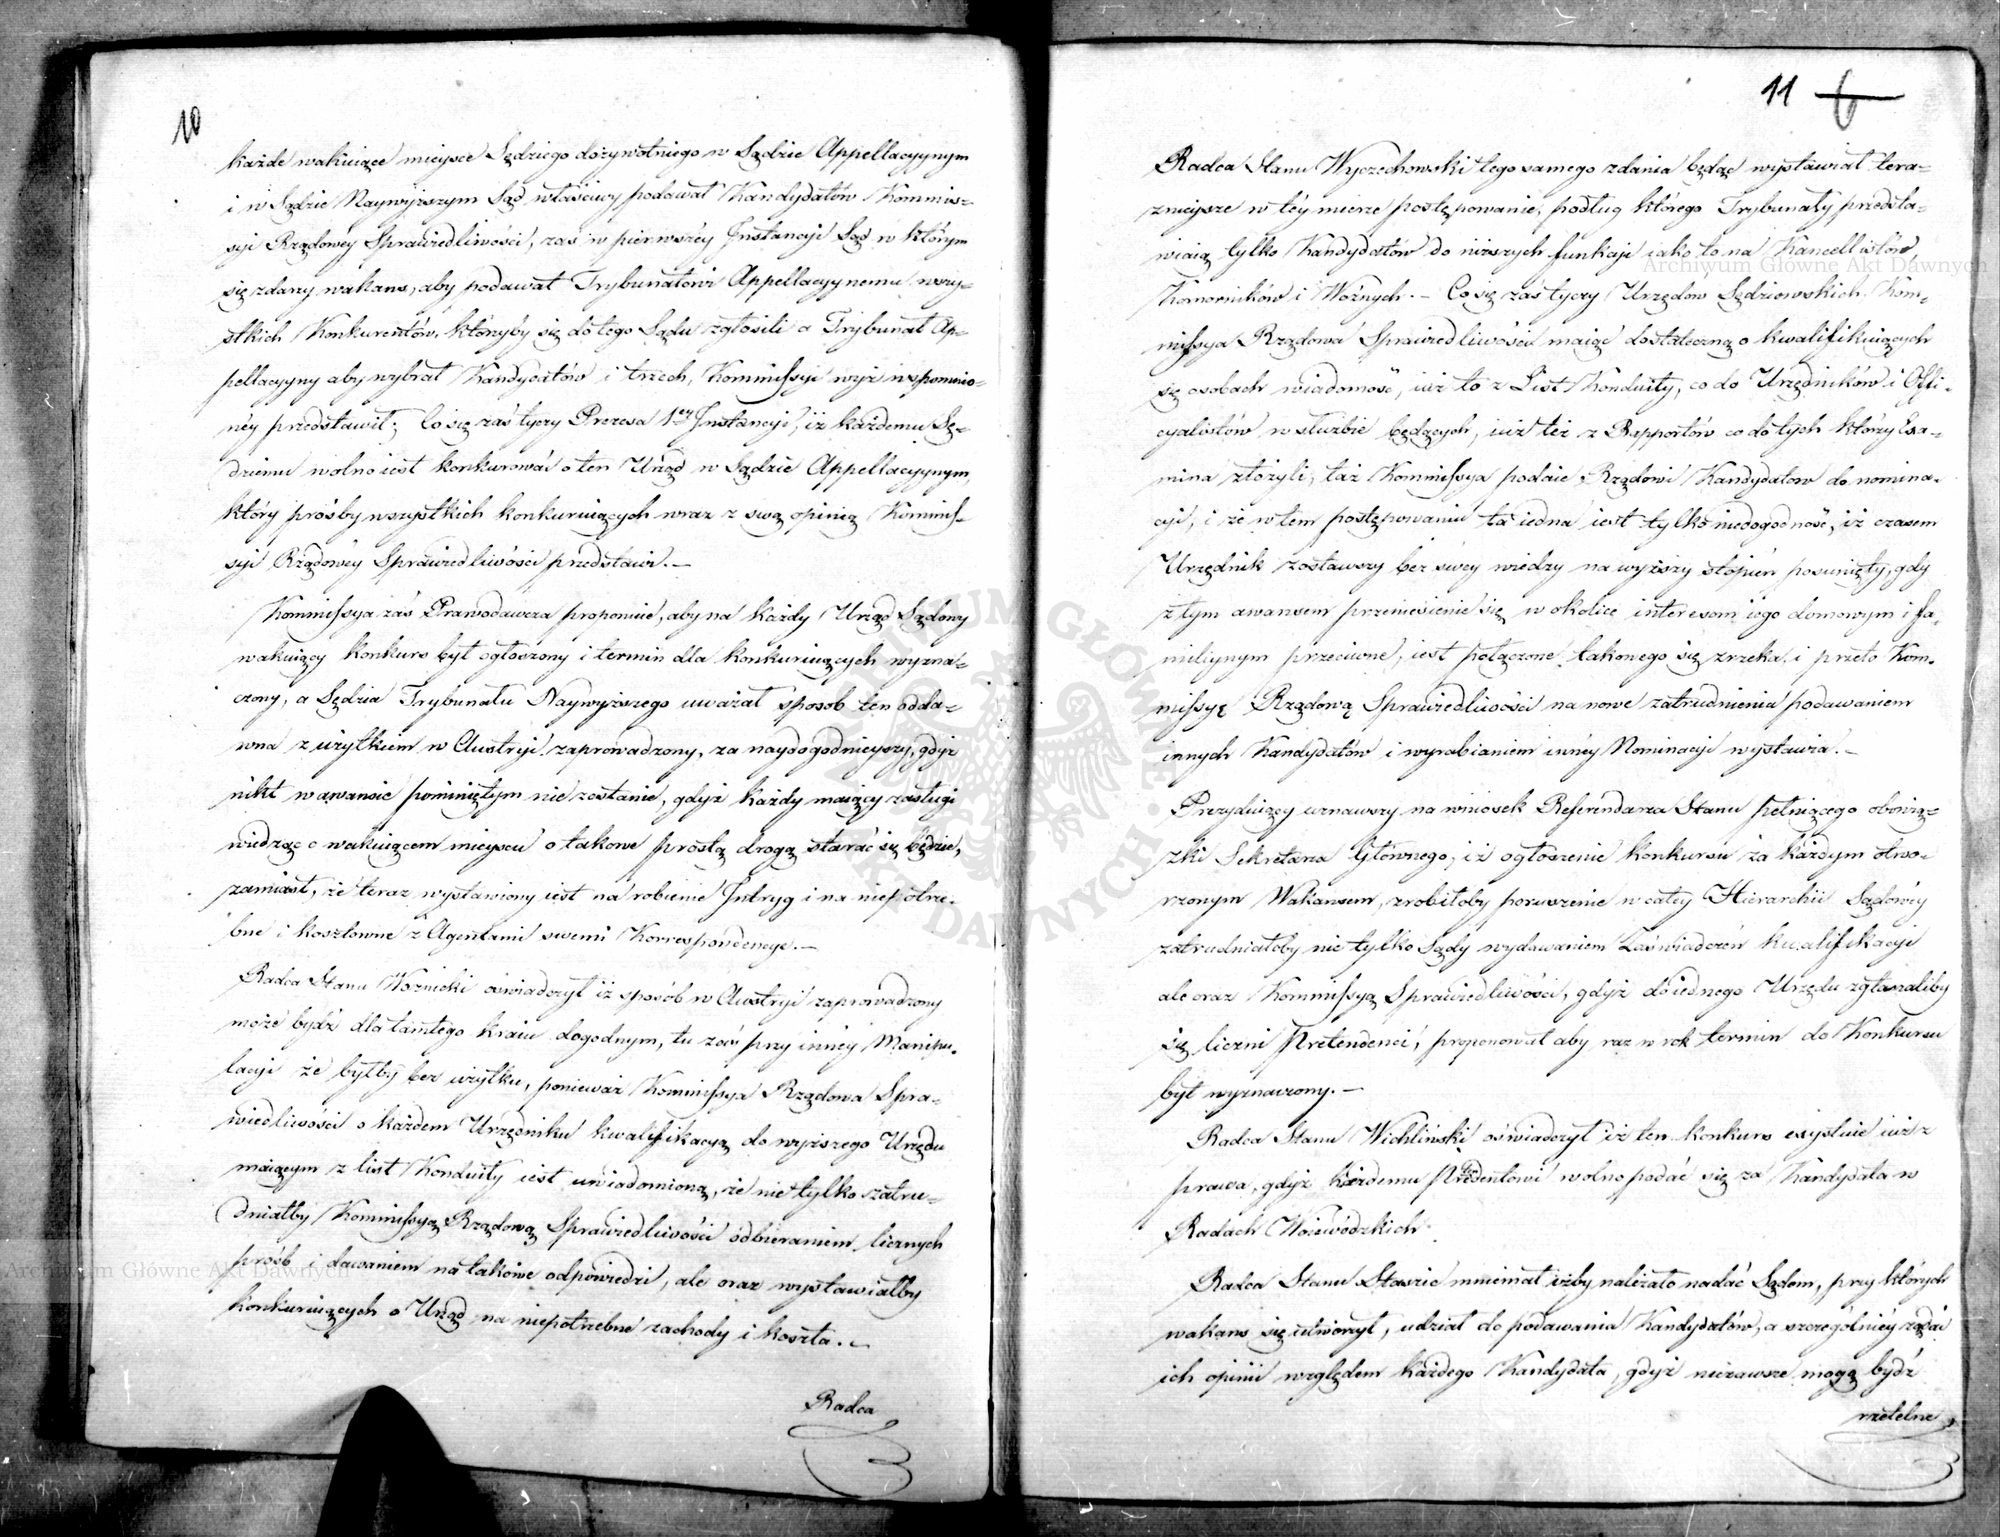 10
każde wakuiące mieysce Sędziego dożywotniego w Sądzie Appellacyynym
i w Sądzie Naywyższym Sąd właściwy podawał Kandydatów Kommis-
syi Rządowéy Sprawiedliwości, zaś w pierwszéy Instancyi Sąd w którym
się zdarzy wakans, aby podawał Trybunałowi Appellacyynemu wszy-
stkich Konkurentów, którzyby się do tego Sądu zgłosili a Trybunał Ap-
pellacyyny aby wybrał Kandydatów i trzech, Kommissyi wyż wspomnio-
néy przedstawił; Co się zaś tyczy Prezesa 1ey Instancyi, iż każdemu Sę-
dziemu wolno iest konkurować o ten Urząd w Sądzie Appellacyynym,
który prośby wszystkich konkuruiących wraz z swą opinią Kommis-
syi Rządowéy Sprawiedliwości przedstawi. —
Kommissya zaś Prawodawcza proponuie, aby na każdy Urząd Sądowy
wakuiący konkurs był ogłoszony i termin dla konkuruiących wyzna-
czony, a Sędzia Trybunału Naywyższego uważał sposób ten odda-
wna z użytkiem w Austryi zaprowadzony, za naydogodnieyszy, gdyż
nikt w awansie pominiętym nie zostanie, gdyż każdy maiący zasługi
wiedząc o wakuiącem mieyscu o takowe prostą drogą starać się będzie,
zamiast, że teraz wystawiony iest na robienie Intryg i na niepotrze-
bne i kosztowne z Agentami swemi Korrespondencye. —
Radca Stanu Woźnicki oświadczył iż sposób w Austryi zaprowadzony
może bydź dla tamtego kraiu dogodnym, tu zaś przy innéy Manipu-
lacyi że byłby bez użytku, ponieważ Kommissya Rządowa Spra-
wiedliwości o każdem Urzędniku kwalifikacyą do wyższego Urzędu
maiącym z list Konduity iest uwiadomioną, że nie tylko zatru-
dniałby Kommissyą Rządową Sprawiedliwości odbieraniem licznych
prośb i dawaniem na takowe odpowiedzi, ale oraz wystawiałby
konkuruiących o Urząd na niepotrzebne zachody i koszta. —
Radca
11 6
Radca Stanu Wyczechowski tego samego zdania będąc wystawiał tera-
znieysze w téy mierze postępowanie, podług którego Trybunały przedsta-
wiaią tylko Kandydatów do niższych funkcyi iako to na Kancellistów,
Komorników i Woźnych. — Co się zaś tyczy Urzędów Sędziowskich Kom-
missya Rządowa Sprawiedliwości maiąc dostateczną o kwalifikuiących
się osobach wiadomość, iuż to z List Konduity, co do Urzędników i Offi-
cyalistów w służbie będących, iuż też z Rapportów co do tych którzy Exa-
mina złożyli, taż Kommissya podaie Rządowi Kandydatów do nomina-
cyi, i że w tem postępowaniu ta iedna iest tylko niedogodność, iż czasem
Urzędnik zostawszy bez swéy wiedzy na wyższy stopień posunięty, gdy
z tym awansem przeniesienie się w okolice interesom iego domowym i fa-
miliynym przeciwne, iest połączone takowego się zrzeka, i przeto Kom-
missyę Rządową Sprawiedliwości na nowe zatrudnienia podawaniem
innych Kandydatów i wyrabianiem innéy Nominacyi wystawia. —
Prezyduiący uznawszy na wniosek Referendarza Stanu pełniącego obowią-
zki Sekretarza Głównego, iż ogłoszenie konkursu za każdym otwo-
rzonym Wakansem, zrobiłoby poruszenie w całey Hierarchii Sądowéy
zatrudniałoby nie tylko Sądy wydawaniem Zaświadczeń kwalifikacyi
ale oraz Kommissyą Sprawiedliwości, gdyż do iednego Urzędu zgłaszaliby
się liczni Pretendenci, proponował aby raz w rok termin do Konkursu
był wyznaczony. —
Radca Stanu Wichliński oświadczył iż ten konkurs exystuie iuż z
prawa, gdyż każdemu Pretendentowi wolno podać się za Kandydata w
Radach Woiewódzkich
Radca Stanu Staszic mniemał iżby należało nadać Sądom, przy których
wakans się utworzył, udział do podawania Kandydatów, a szczególniéy żądać
ich opinii względem każdego Kandydata, gdyż niezawsze mogą bydź
rzetelne
Archiwum Główne Akt Dawnych
Archiwum Główne Akt Dawnych
ARCHIWUM GŁÓWNE AKT DAWNYCH